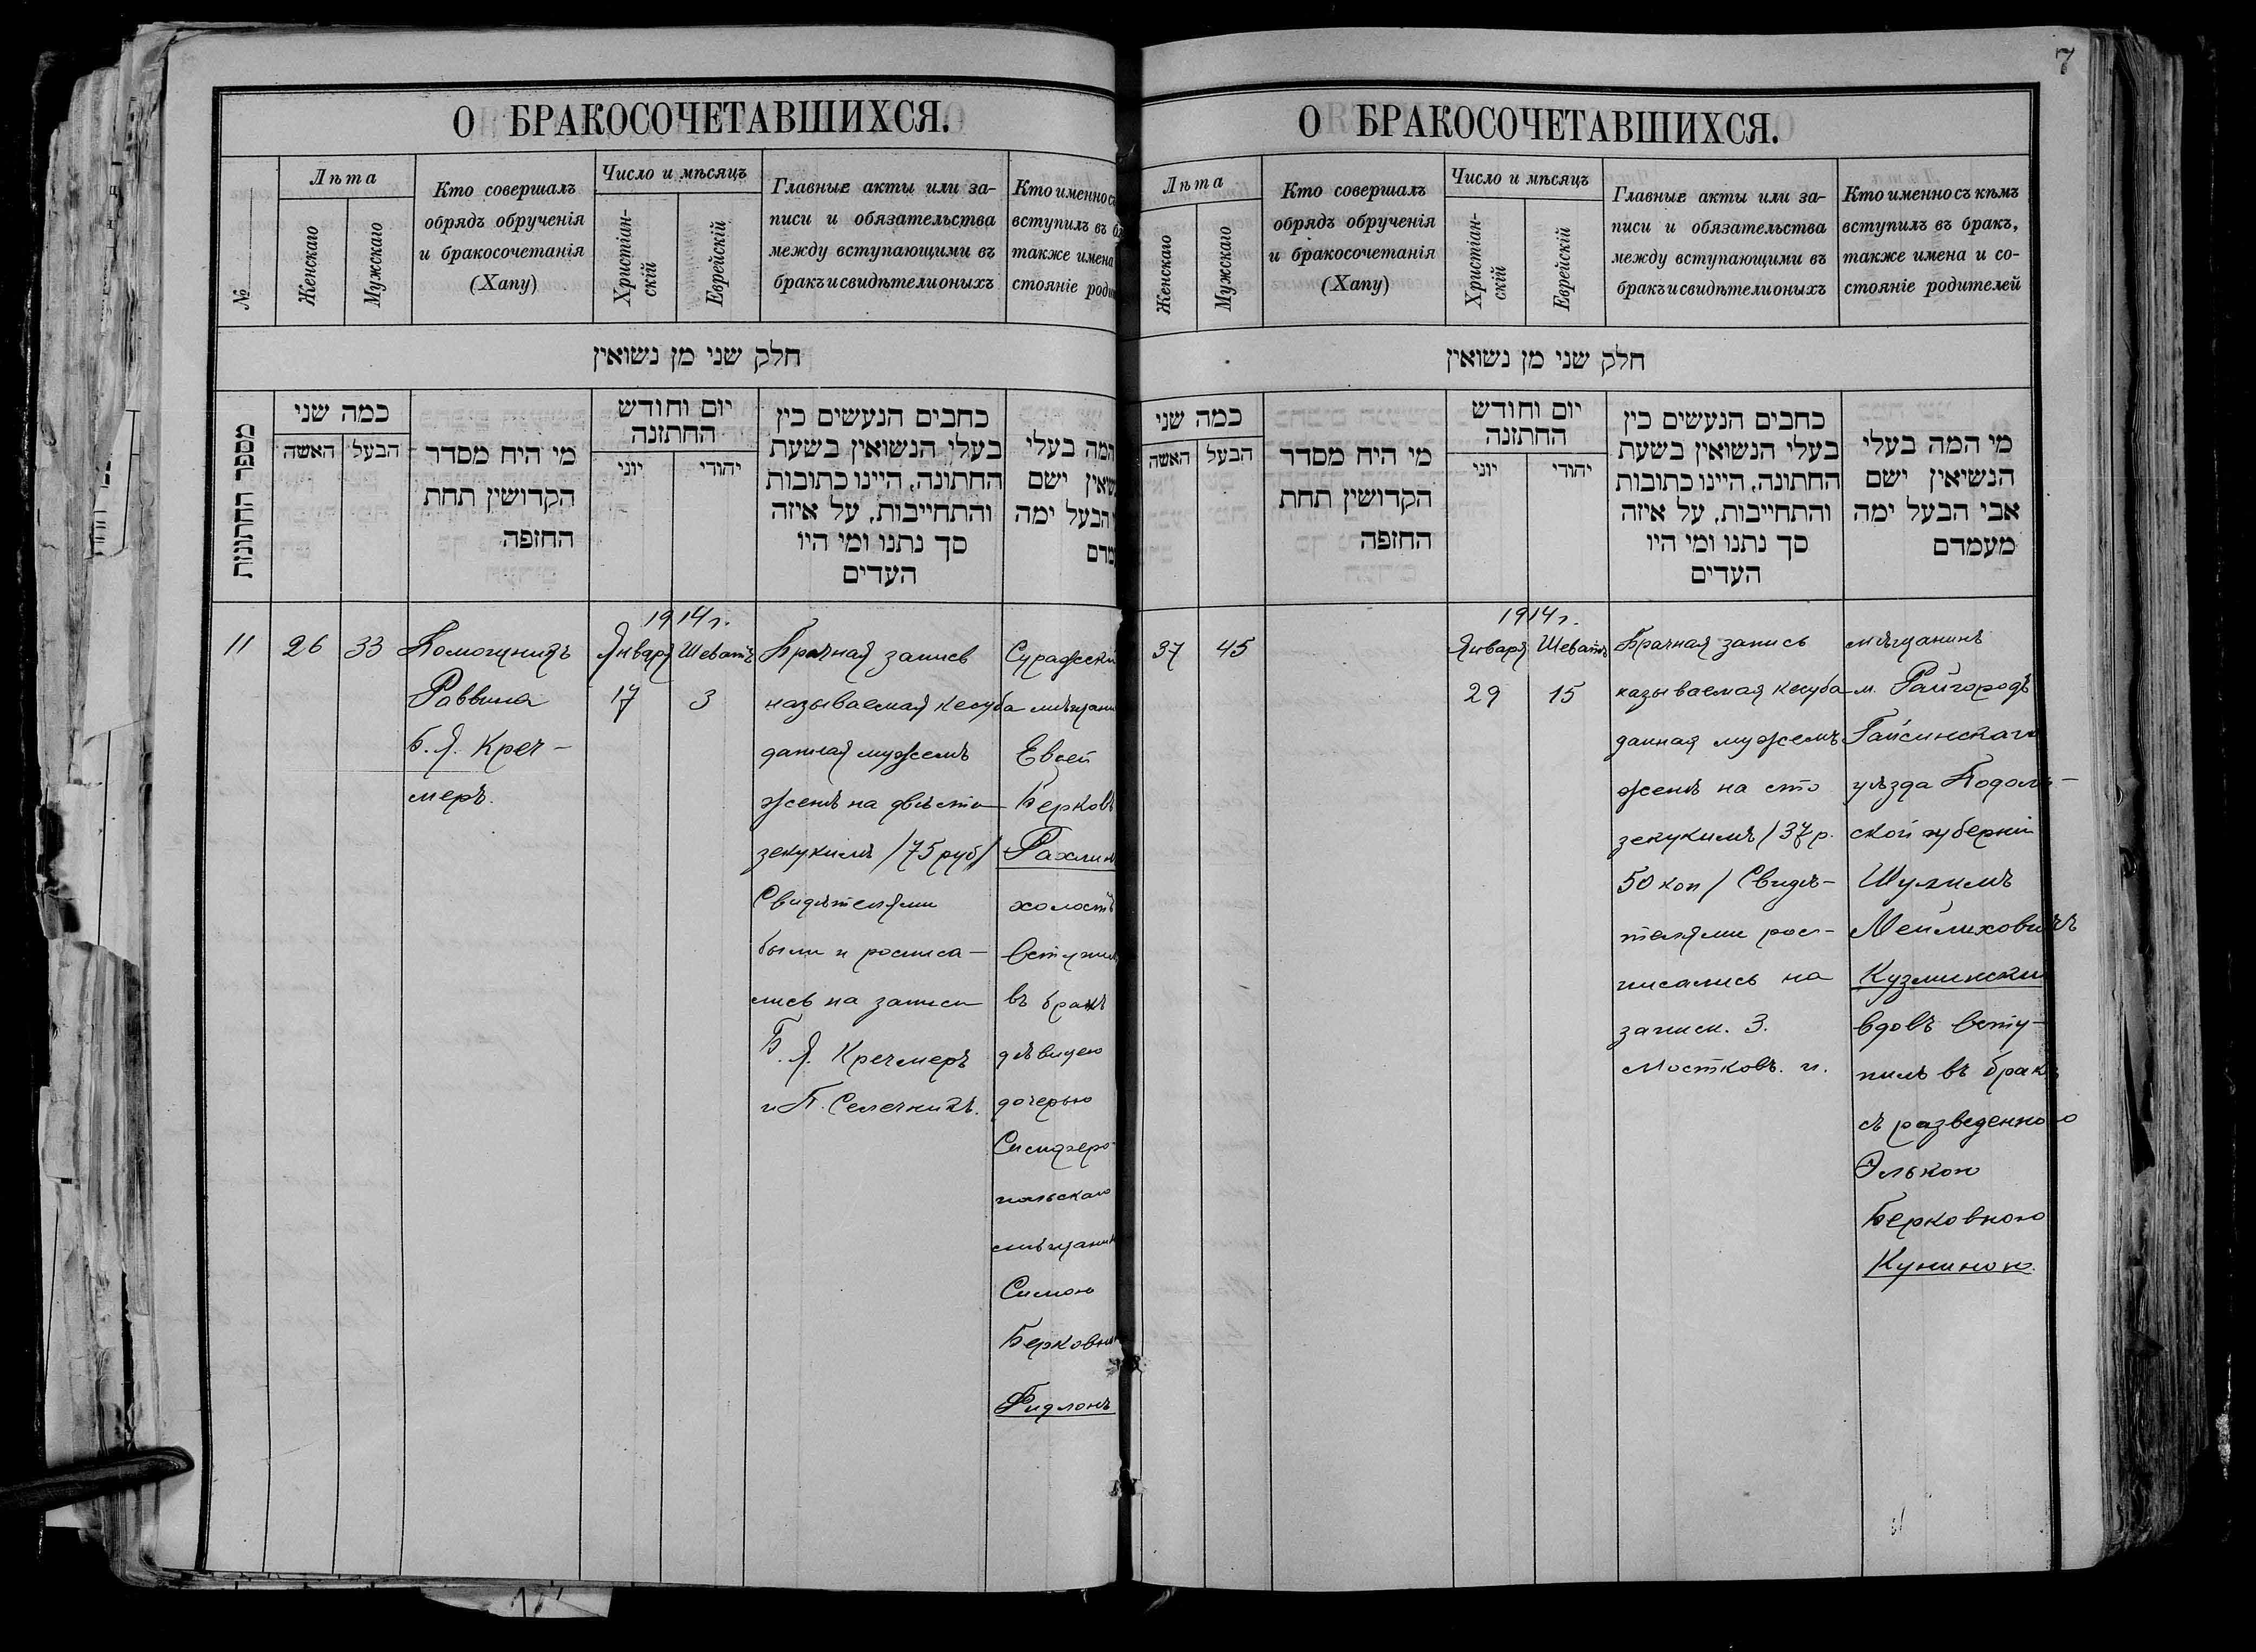 7
О БРАКОСОЧЕТАВШИХСЯ.
№
Лѣта
Женскаго
Мужскаго
Кто совершалъ
обрядъ обрученія
и бракосочетанія
(Хапу)
Число и мѣсяцъ
Христіан-
скій
Еврейскій
Главные акты или за-
писи и обязательства
между вступающими въ
бракъ и свидѣтели оныхъ
Кто именно съ
вступилъ въ
также имена
стояніе
חלק שני מן נשואין
מספר החתונות
כמה שני
האשה
הבעל
מי היח מסדר
הקדושין תחת
החזפה
יום וחודש
החתזנה
יוני
יהודי
כחבים הנעשים כין
בעלי הנשואין בשעת
החתונה, היינו כתובות
והתחייבות, על איזה
סך נתנו ומי היו
העדים
המה בעלי
ישם
הבעל ימה
11
26
33
Помощникъ
Раввина
Б. Я. Креч-
меръ.
1914 г.
Января
Шеватъ
17
3
Брачная запись
называемая кесуба
данная мужемъ
женѣ на двѣсти
зекукимъ /75 руб/
Свидѣтелями
были и росписа-
лись на записи
Б. Я. Кречмеръ
и П. Селечникъ.
Суражскі
мѣщани
Евсей
Берковъ
Рахлин
холостъ
вступил
въ бракъ
дѣвицею
дочерью
Симферо-
польскаго
мѣщанин
Симою
Берковн
Фидлонъ
О БРАКОСОЧЕТАВШИХСЯ.
Лѣта
Женскаго
Мужскаго
Кто совершалъ
обрядъ обрученія
и бракосочетанія
(Хапу)
Число и мѣсяцъ
Христіан-
скій
Еврейскій
Главные акты или за-
писи и обязательства
между вступающими въ
бракъ и свидѣтели оныхъ
Кто именно съ кѣмъ
вступилъ въ бракъ,
также имена и со-
стояніе родителей
חלק שני מן נשואין
כמה שני
האשה
הבעל
מי היח מסדר
הקדושין תחת
החזפה
יום וחודש
החתזנה
יוני
יהודי
כחבים הנעשים כין
בעלי הנשואין בשעת
החתונה, היינו כתובות
והתחייבות, על איזה
סך נתנו ומי היו
העדים
מי המה בעלי
הנשיאין ישם
אבי הבעל ימה
מעמדם
37
45
1914 г.
Января
Шеватъ
29
15
Брачная запись
называемая кесуба
данная мужемъ
женѣ на сто
зекукимъ /37 р.
50 коп/ Свидѣ-
телями рос-
писались на
записи. З.
Мостковъ. и.
мѣщанинъ
м. Райгородъ
Гайсинскаго
уѣзда Подоль-
ской губерніи
Шулимъ
Мейлиховичъ
Кузминскій
вдовъ всту-
пилъ въ бракъ
съ разведенною
Элькою
Берковною
Куниною.